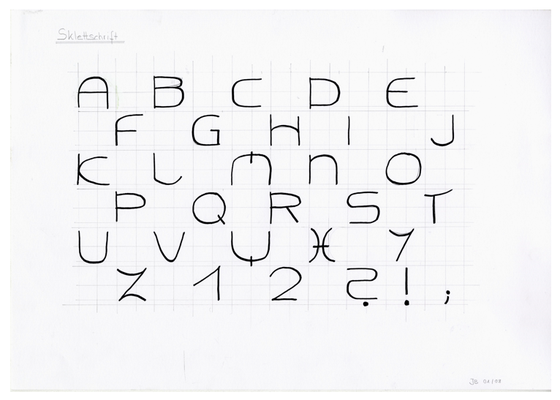 Sklettschrift
A B C D E
F G H I J
K L M N O
P Q R S T
U V W X Y
Z 1 2 ? ! ;